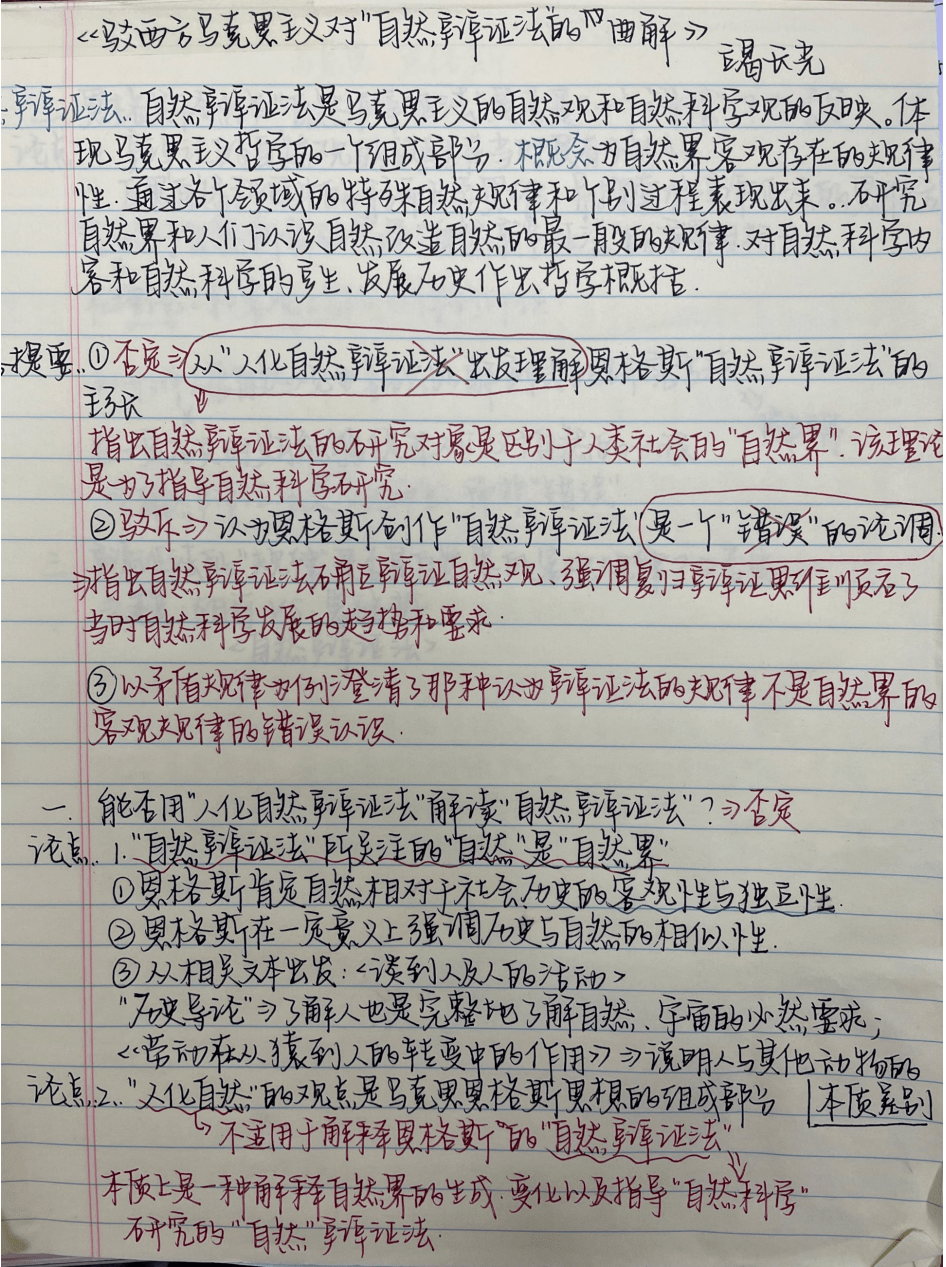 《驳西方马克思主义对"自然辩证法的"曲解》
葛长光
辩证法..自然辩证法是马克思主义的自然观和自然科学观的反映。体
现马克思主义哲学的一个组成部分.概念为自然界客观存在的规律
性.通过各个领域的特殊自然规律和个别过程表现出来。.研究
自然界和人们认识自然改造自然的最一般的规律.对自然科学内
容和自然科学的产生、发展历史作出哲学概括.
提要..①否定⇒从"人化自然辩证法"出发理解恩格斯"自然辩证法"的
主张
指出自然辩证法的研究对象是区别于人类社会的"自然界".该理论
是为了指导自然科学研究.
②驳斥⇒认为恩格斯创作"自然辩证法"是一个"错误"的论调.
⇒指出自然辩证法确立辩证自然观、强调复归辩证思维顺应了
当时自然科学发展的趋势和要求.
③以矛盾规律为例澄清了那种认为辩证法的规律不是自然界的
客观规律的错误认识.
一 能否用"人化自然辩证法"解读"自然辩证法"?⇒否定
论点..1."自然辩证法"所关注的"自然"是"自然界"
①恩格斯肯定自然相对于社会历史的客观性与独立性.
②恩格斯在一定意义上强调历史与自然的相似性.
③从相关文本出发:<谈到人及人的活动>
"历史导论"⇒了解人也是完整地了解自然、宇宙的必然要求;
《劳动在从猿到人的转变中的作用》⇒说明人与其他动物的
本质差别
论点2.."人化自然"的观点是马克思恩格斯思想的组成部分
不适用于解释恩格斯"的"自然辩证法"
本质上是一种解释自然界的生成.变化以及指导"自然科学"
研究的"自然"辩证法.